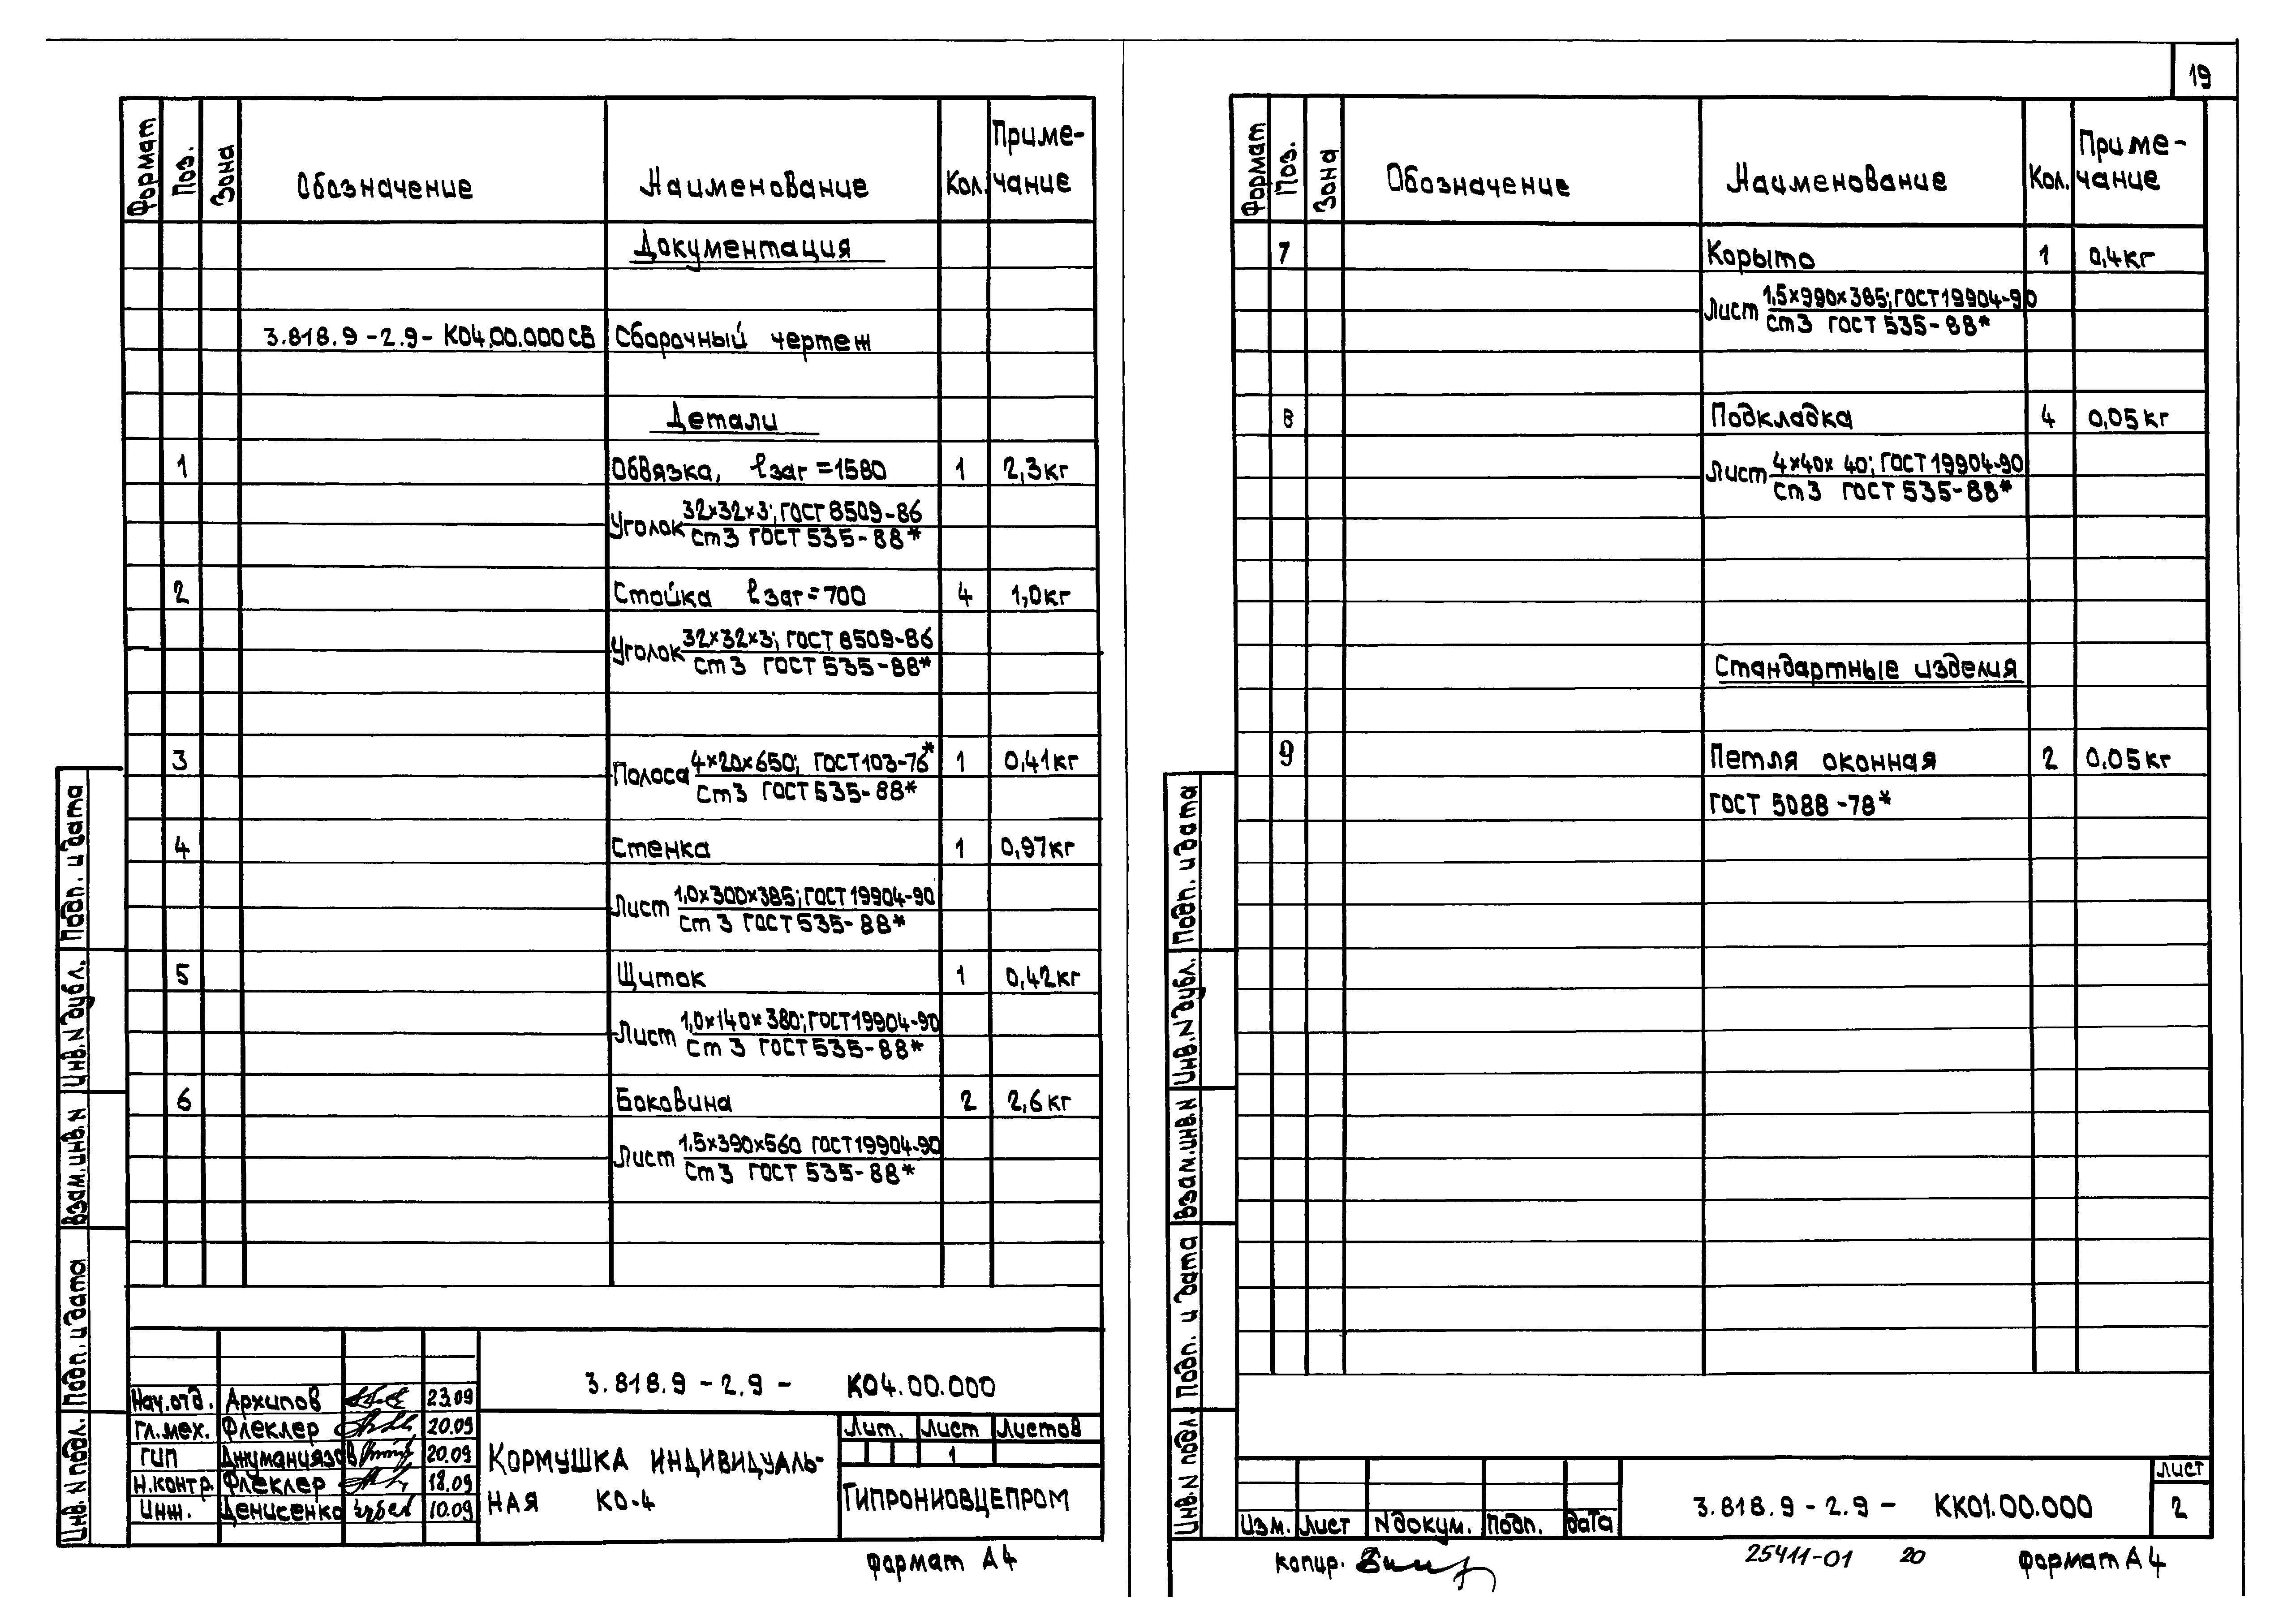 19
Формат
Поз.
Зона
Обозначение
Наименование
Кол.
Приме-
чание
Документация
3.818.9-2.9- КО4.00.000СБ Сборочный чертеж
Детали
1 Обвязка, ℓзаг=1580 1 2,3кг
Уголок 32×32×3; ГОСТ 8509-86
ст3 ГОСТ 535-88*
2 Стойка ℓзаг=700 4 1,0кг
Уголок 32×32×3; ГОСТ 8509-86
ст3 ГОСТ 535-88*
3 Полоса 4×20×650; ГОСТ103-76* 1 0,41кг
ст3 ГОСТ535-88*
4 Стенка 1 0,97кг
Лист 1,0×300×385; ГОСТ19904-90
ст3 ГОСТ535-88*
5 Щиток 1 0,42кг
Лист 1,0×140×380; ГОСТ19904-90
ст3 ГОСТ535-88*
6 Боковина 2 2,6кг
Лист 1.5×390×560 ГОСТ19904-90
ст3 ГОСТ 535-88*
Подп. и дата
Инв.N дубл.
Взам.инв.N
Подп. и дата
Инв.N подл.
Нач.отд. Архипов 23.09
Гл.мех. Флеклер 20.09
ГИП Джуманиязов 20.09
Н.контр. Флеклер 18.09
Инж. Денисенко 10.09
3.818.9-2.9- КО4.00.000
КОРМУШКА ИНДИВИДУАЛЬ-
НАЯ КО-4
Лит. Лист Листов
1
ГИПРОНИОВЦЕПРОМ
Формат А4
Формат
Поз.
Зона
Обозначение
Наименование
Кол.
Приме-
чание
7 Корыто 1 0,4кг
Лист 1,5×990×385; ГОСТ19904-90
ст3 ГОСТ 535-88*
8 Подкладка 4 0,05кг
Лист 4×40×40; ГОСТ19904-90
ст3 ГОСТ 535-88*
Стандартные изделия
9 Петля оконная 2 0.05кг
ГОСТ 5088-78*
Подп. и дата
Инв.N дубл.
Взам.инв.N
Подп. и дата
Инв.N подл.
Изм. Лист N докум. Подп. дата
3.818.9-2.9- КК01.00.000
Лист
2
Копир.
25411-01 20
Формат А4